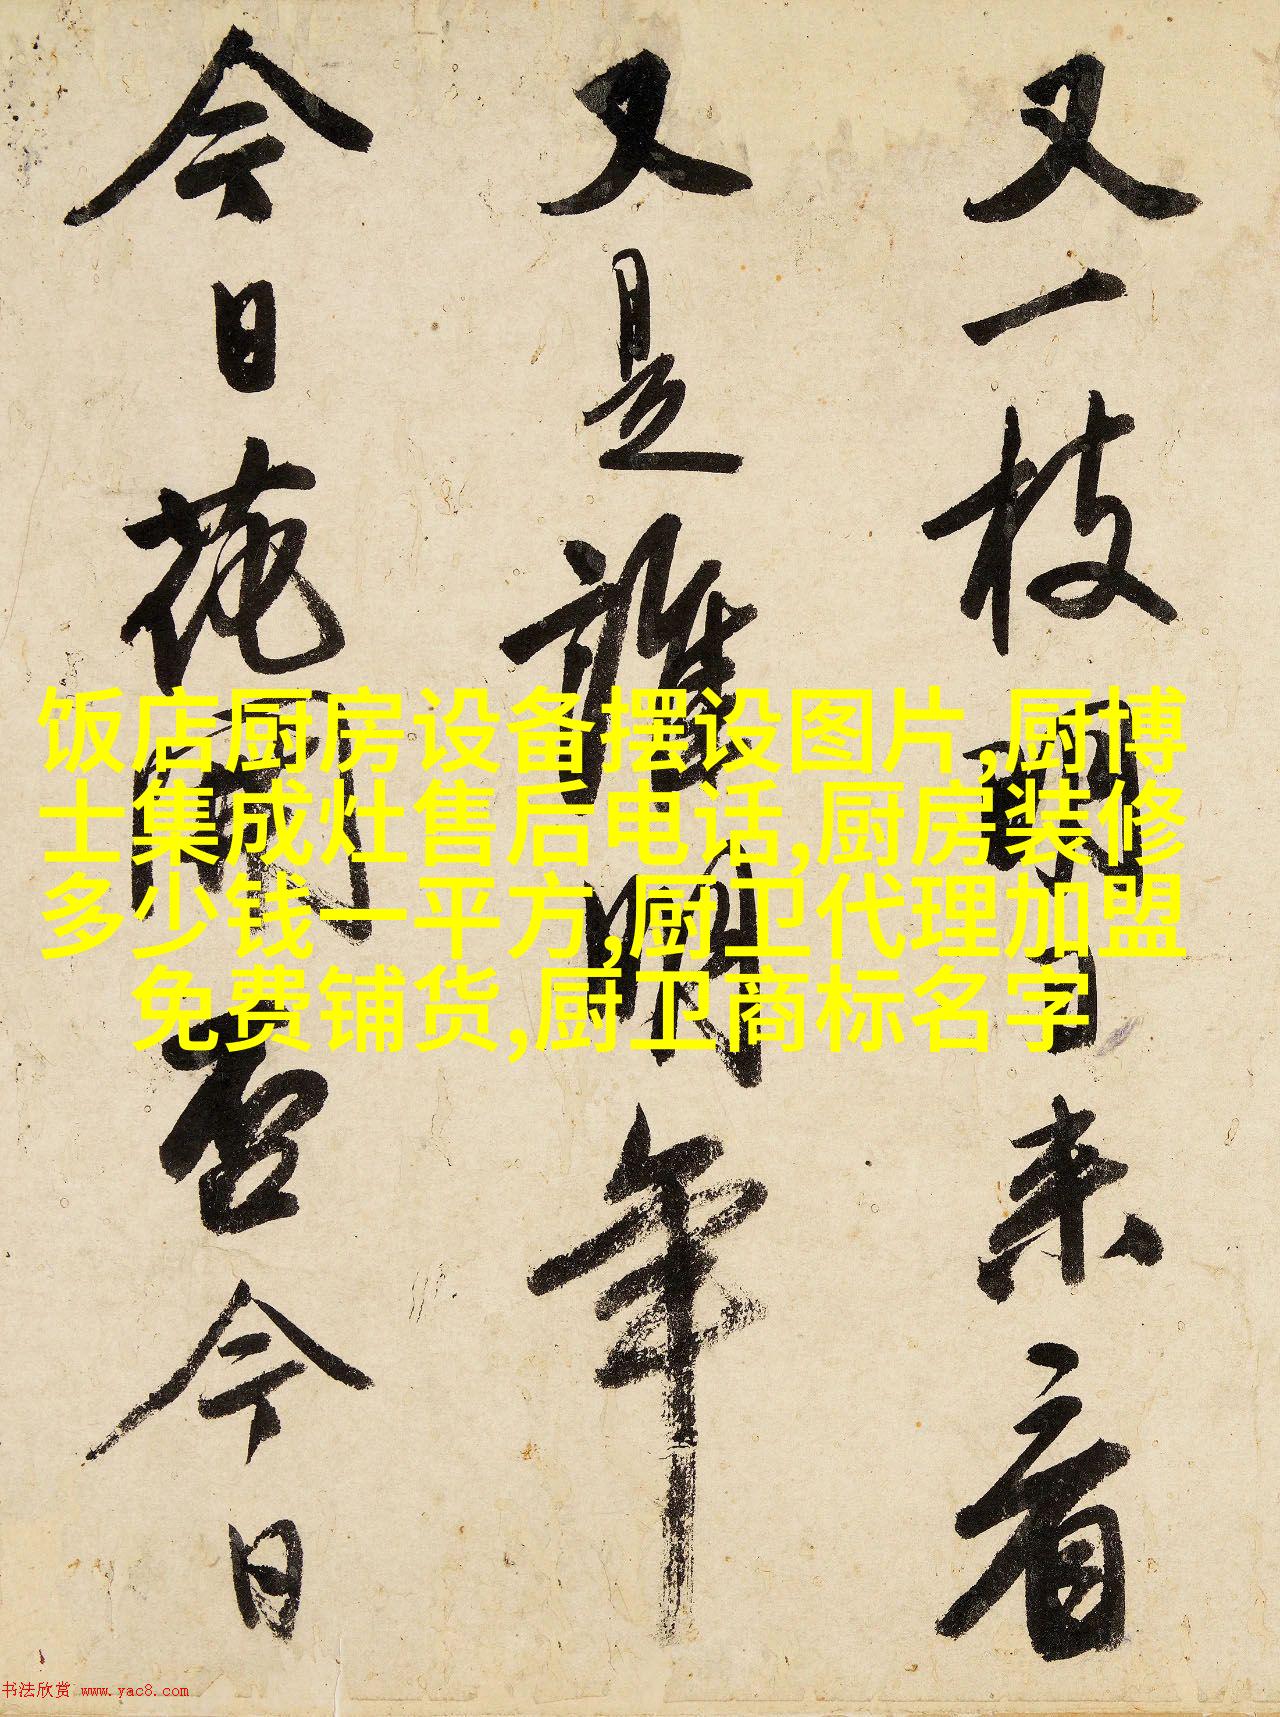 又一枝明日来看
又是誰明年
今日花開否今日
饭店厨房设备摆设图片,厨博
士集成灶售后电话,厨房装修
多少钱一平方,厨卫代理加盟
免费铺货,厨卫商标名字
书法欣赏 www.yac8.com